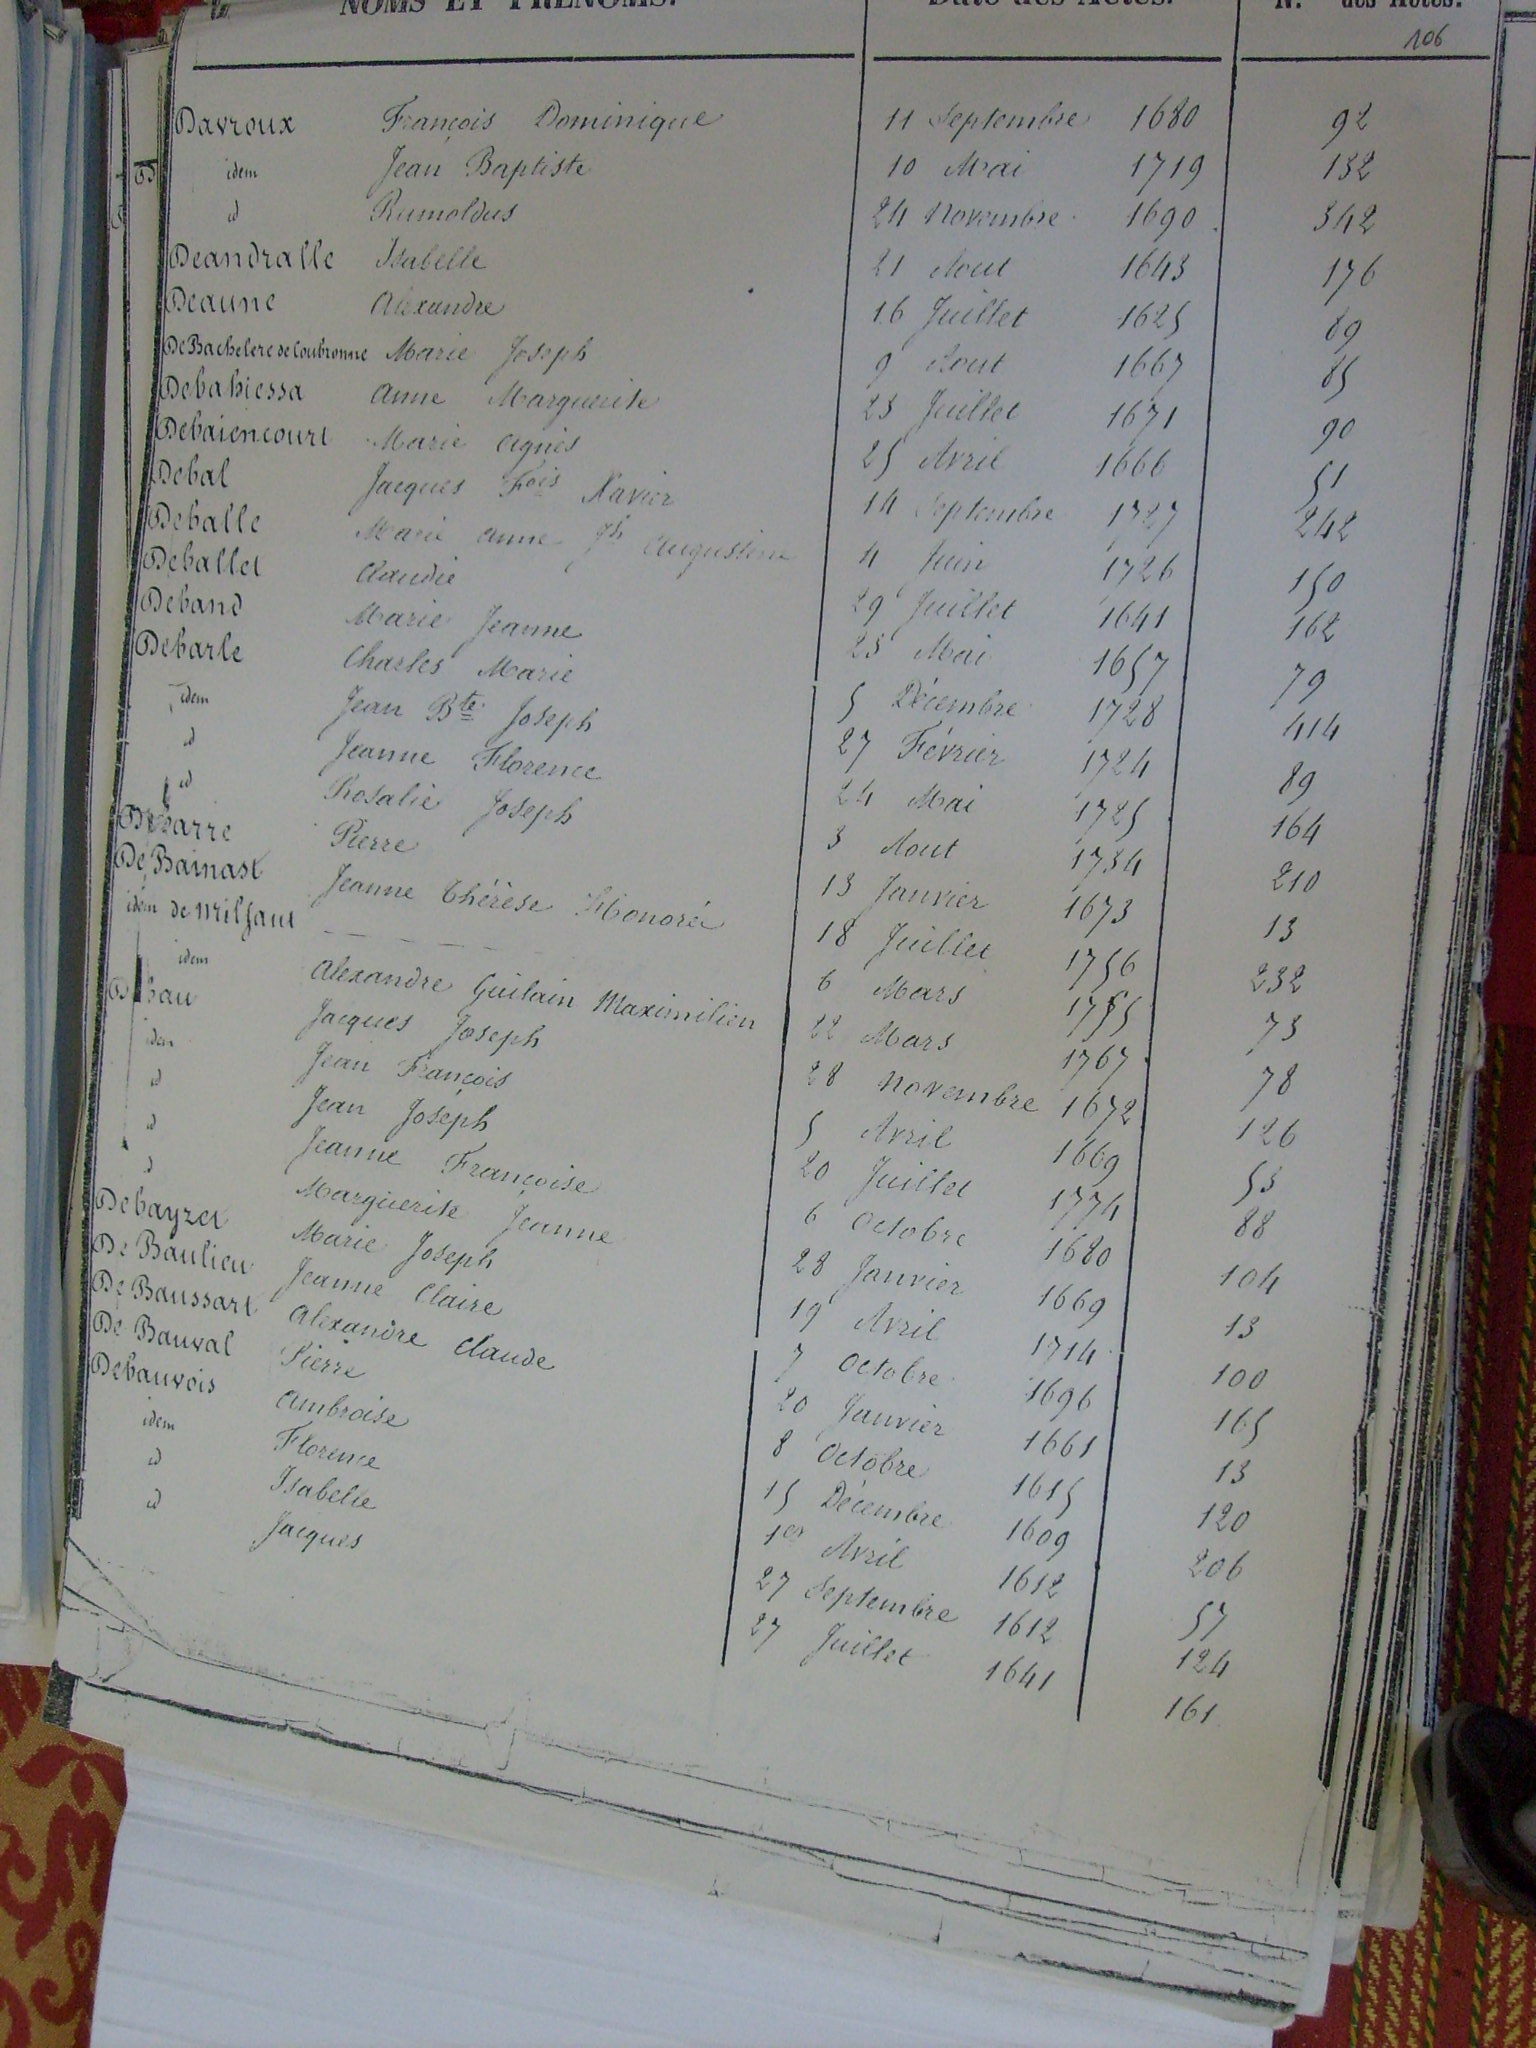 NOMS ET PRÉNOMS. Date des Actes. N.os des Actes.
106
Davroux François Dominique 11 Septembre 1680 92
idem Jean Baptiste 10 Mai 1719 132
id Rumoldus 24 Novembre 1690 342
Deandralle Isabelle 21 Aout 1643 176
Deaune Alexandre 16 Juillet 1625 89
De Bachelere de Coubronne Marie Joseph 9 Aout 1667 85
Debahiessa Anne Marguerite 23 Juillet 1671 90
Debaiencourt Marie Agnès 25 Avril 1666 51
Debal Jacques Fois Xavier 14 Septembre 1727 242
Deballe Marie Anne Jh Augustine 4 Juin 1726 150
Deballet Claudie 29 Juillet 1641 162
Deband Marie Jeanne 23 Mai 1657 79
Debarle Charles Marie 5 Décembre 1728 414
idem Jean Bte Joseph 27 Février 1724 89
id Jeanne Florence 24 Mai 1725 164
id Rosalie Joseph 3 Aout 1734 210
Debarre Pierre 13 Janvier 1673 13
De Bainast Jeanne Thérèse Honorée 18 Juillet 1756 232
idem de Milfaut — — — — 6 Mars 1755 73
idem Alexandre Guilain Maximilien 22 Mars 1767 78
Debau Jacques Joseph 28 novembre 1672 126
idem Jean François 5 Avril 1669 53
id Jean Joseph 20 Juillet 1774 88
id Jeanne Françoise 6 Octobre 1680 104
id Marguerite Jeanne 28 Janvier 1669 13
Debayzet Marie Joseph 19 Avril 1714 100
De Baulieu Jeanne Claire 7 Octobre 1696 165
De Baussart Alexandre Claude 20 Janvier 1661 13
De Bauval Pierre 8 Octobre 1615 120
Debauvois Ambroise 15 Décembre 1609 206
idem Florence 1er Avril 1612 57
id Isabelle 27 Septembre 1612 124
id Jacques 27 Juillet 1641 161